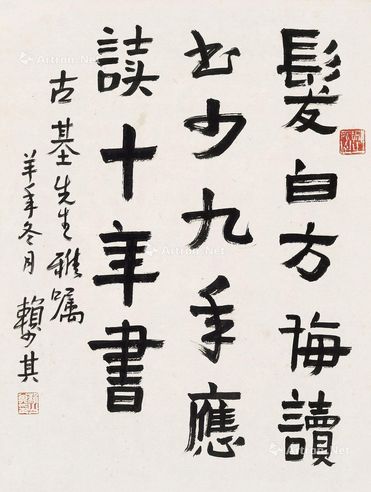 髮白方悔讀
书少九年應
讀十年書
古基先生雅嘱
羊年冬月 賴少其
Artron.Net